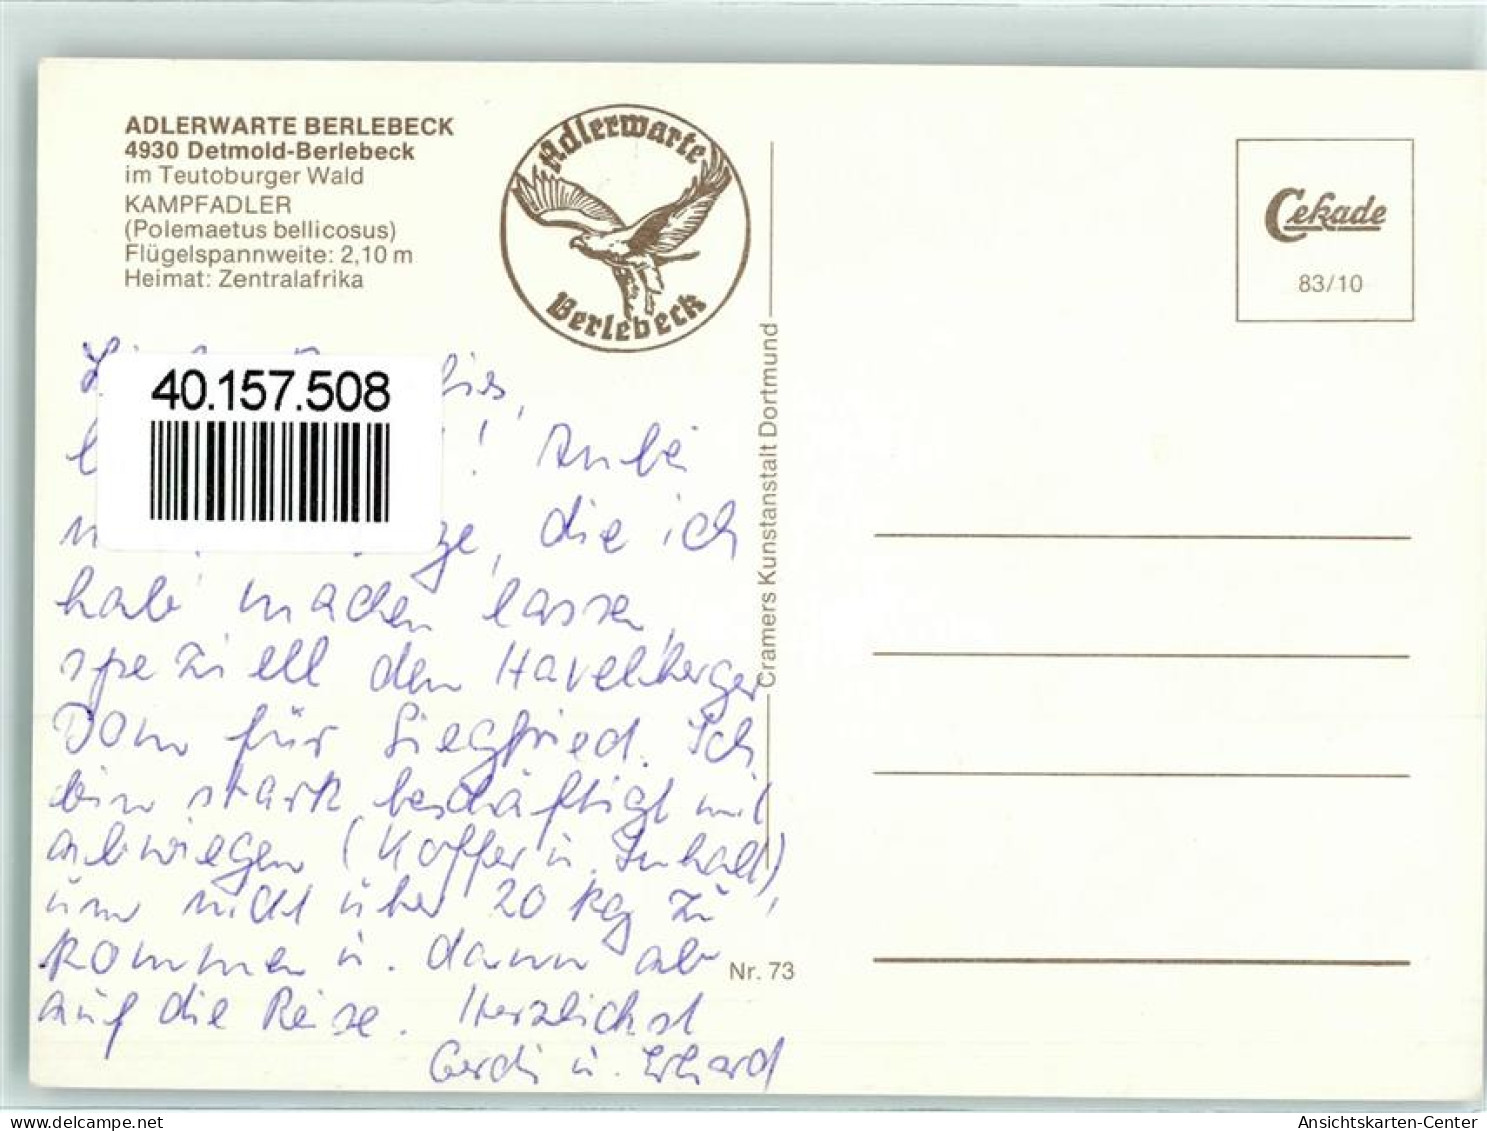 ADLERWARTE BERLEBECK
4930 Detmold-Berlebeck
im Teutoburger Wald
KAMPFADLER
(Polemaetus bellicosus)
Flügelspannweite: 2,10 m
Heimat: Zentralafrika
Adlerwarte
Berlebeck
Cekade
83/10
40.157.508
! Anbei
die ich
hab machen lassen,
speziell den Havelberger
Dom für Siegfried. Ich
bin stark beschäftigt mit
abwiegen (Koffer u. Inhalt),
um nicht über 20 kg zu
kommen u. dann ab
auf die Reise. Herzlichst
Gerdi u. Erhard
Cramers Kunstanstalt Dortmund
Nr. 73
delcampe.net
Ansichtskarten-Center